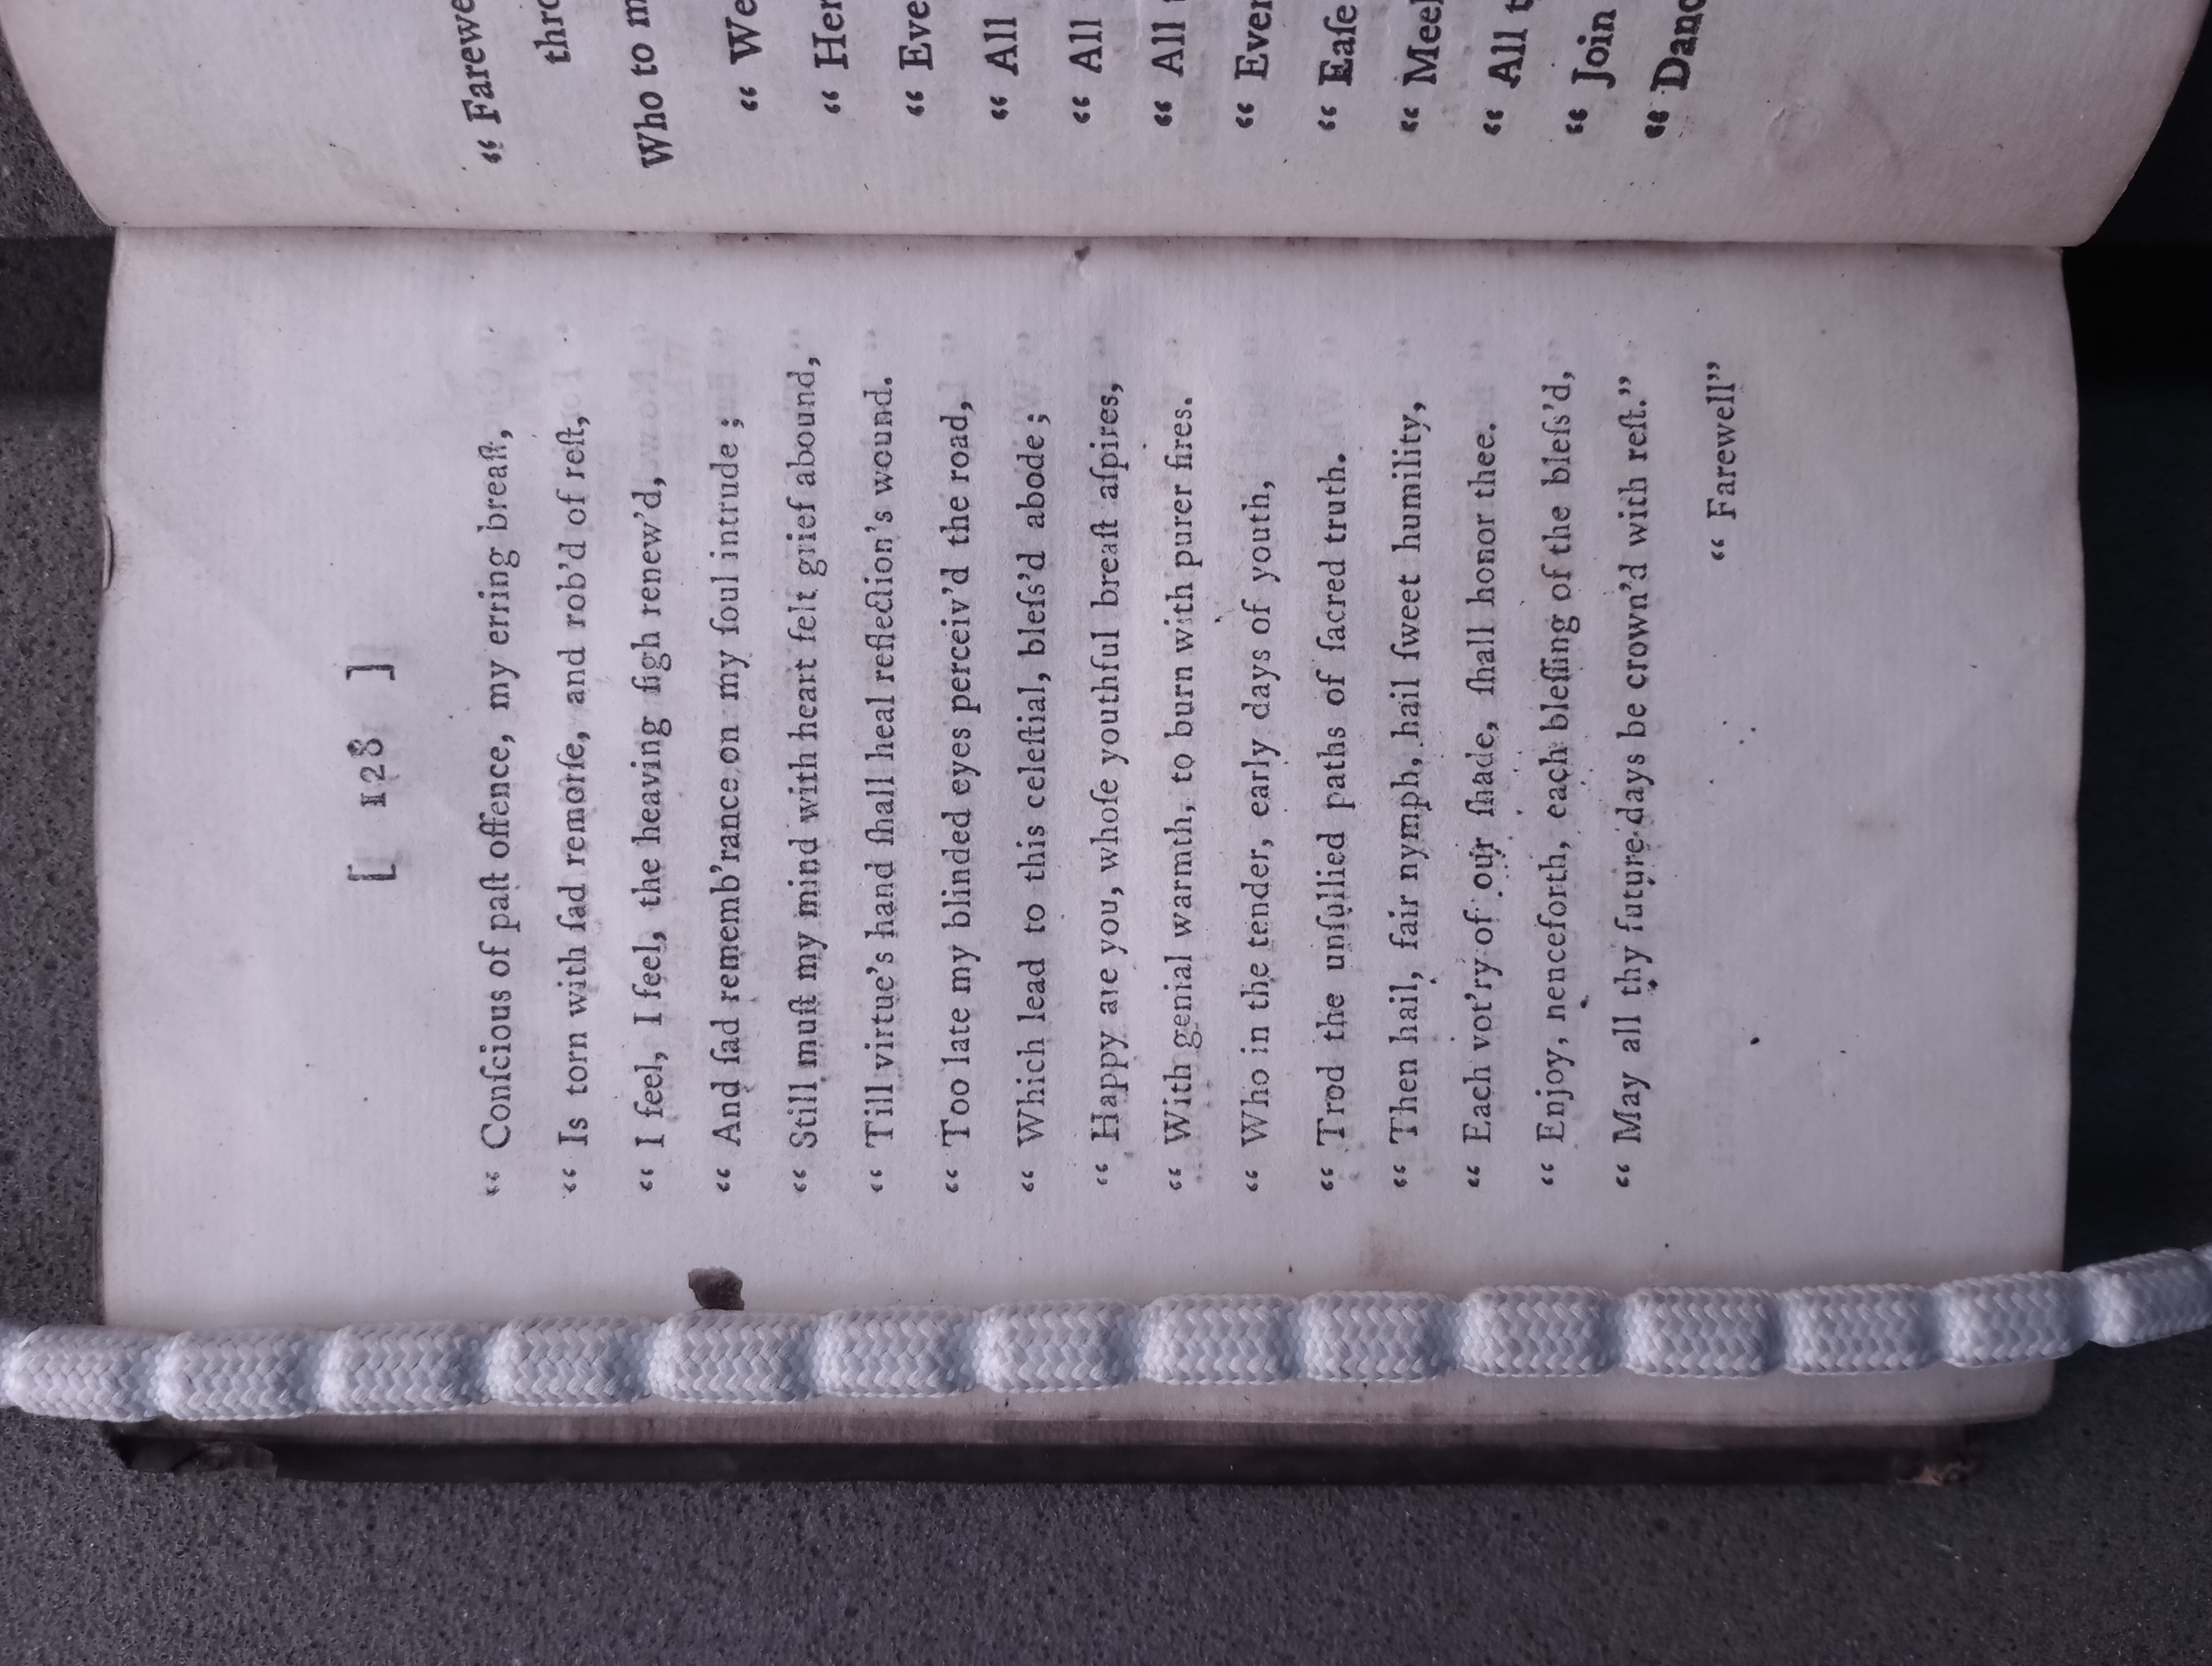 [ 128 ]
“ Conſcious of paſt offence, my erring breaſt,
“ Is torn with ſad remorſe, and rob’d of reſt,
“ I feel, I feel, the heaving ſigh renew’d,
“ And ſad rememb’rance on my ſoul intrude ;
“ Still muſt my mind with heart felt grief abound,
“ Till virtue’s hand ſhall heal reflection’s wound.
“ Too late my blinded eyes perceiv’d the road,
“ Which lead to this celeſtial, bleſs’d abode ;
“ Happy are you, whoſe youthful breaſt aſpires,
“ With genial warmth, to burn with purer fires.
“ Who in the tender, early days of youth,
“ Trod the unſullied paths of ſacred truth.
“ Then hail, fair nymph, hail ſweet humility,
“ Each vot’ry of our ſhade, ſhall honor thee.
“ Enjoy, henceforth, each bleſſing of the bleſs’d,
“ May all thy future days be crown’d with reſt.”
“ Farewell”
“ Farewe
thro
Who to m
“ We
“ Her
“ Eve
“ All
“ All
“ All t
“ Ever
“ Eaſe
“ Meel
“ All t
“ Join
“ Danc